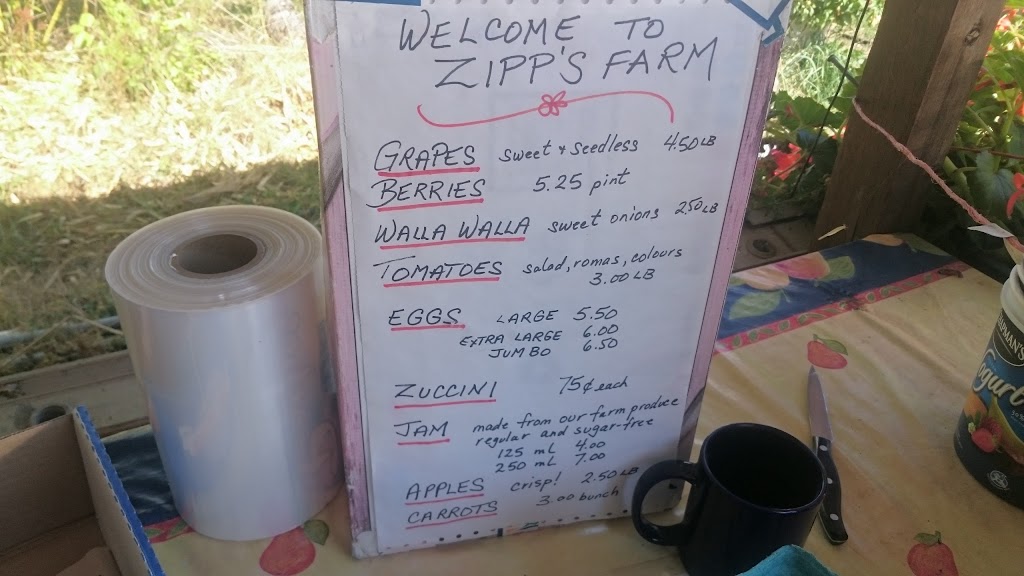 WELCOME TO
ZIPP'S FARM
GRAPES sweet & seedless 4.50 LB
BERRIES 5.25 pint
WALLA WALLA sweet onions 2.50 LB
TOMATOES salad, romas, colours
3.00 LB
EGGS LARGE 5.50
EXTRA LARGE 6.00
JUMBO 6.50
ZUCCINI 75¢ each
JAM made from our farm produce
regular and sugar-free
125 ml 4.00
250 ml 7.00
APPLES crisp! 2.50 LB
CARROTS 3.00 bunch